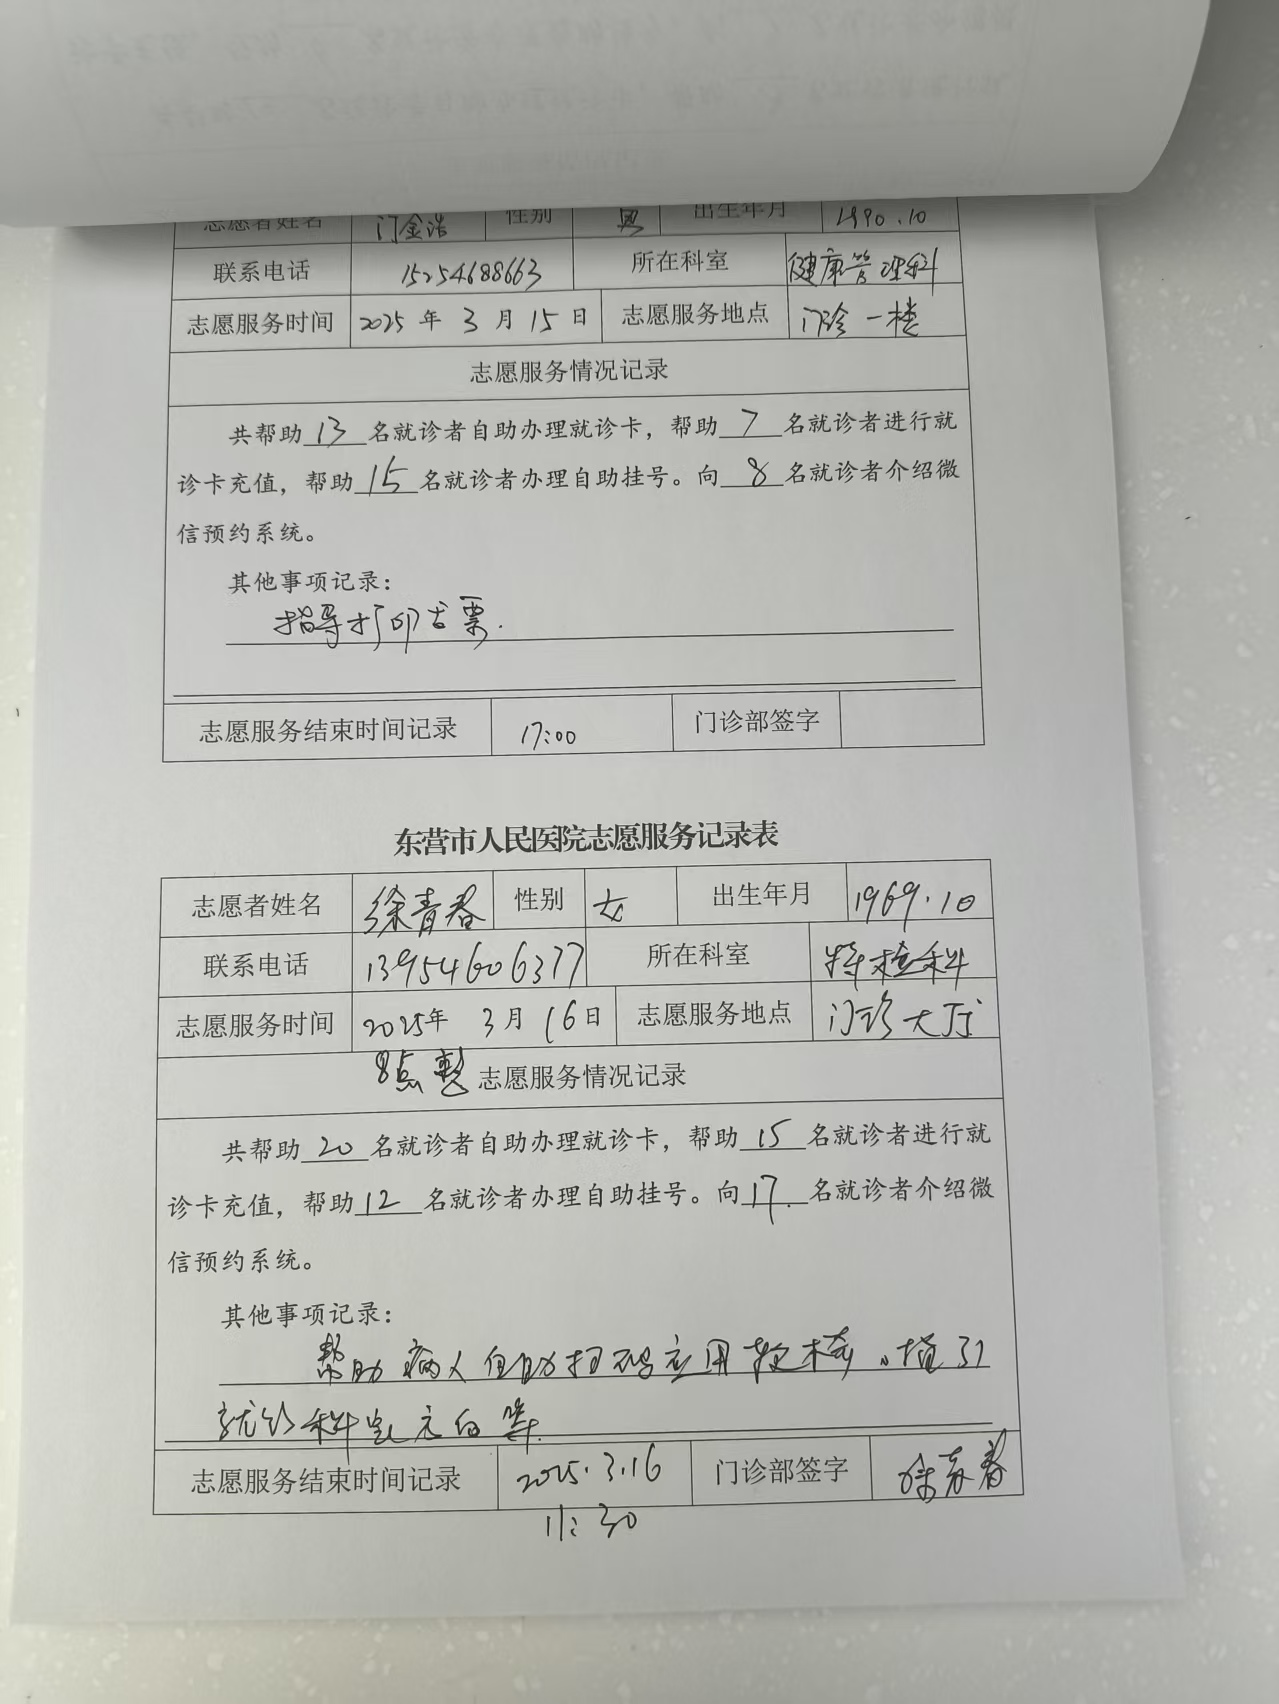 志愿者姓名 门金浩 性别 男 出生年月 1990.10
联系电话 15254688663 所在科室 健康管理科
志愿服务时间 2025年 3月 15日 志愿服务地点 门诊一楼
志愿服务情况记录
共帮助13名就诊者自助办理就诊卡，帮助7名就诊者进行就
诊卡充值，帮助15名就诊者办理自助挂号。向8名就诊者介绍微
信预约系统。
其他事项记录：
指导打印发票.
志愿服务结束时间记录 17:00 门诊部签字
东营市人民医院志愿服务记录表
志愿者姓名 徐青春 性别 女 出生年月 1969.10
联系电话 13954606377 所在科室 特检科
志愿服务时间 2025年 3月 16日 志愿服务地点 门诊大厅
8点整 志愿服务情况记录
共帮助20名就诊者自助办理就诊卡，帮助15名就诊者进行就
诊卡充值，帮助12名就诊者办理自助挂号。向17名就诊者介绍微
信预约系统。
其他事项记录：
帮助病人自助扫码应用轮椅。指引
就诊科室元白等.
志愿服务结束时间记录 2025.3.16 门诊部签字 徐青春
11:30